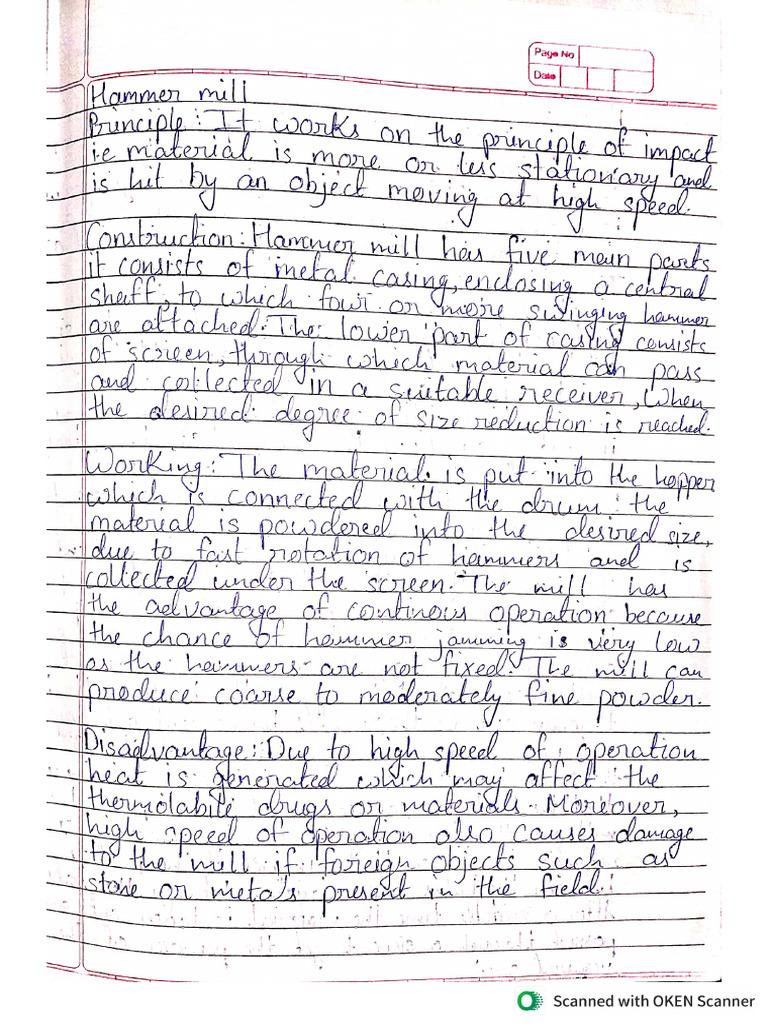 Page No
Date
Hammer mill
Principle: It works on the principle of impact
i.e material is more or less stationary and
is hit by an object moving at high speed.
Construction: Hammer mill has five main parts
it consists of metal casing, enclosing a central
shaft, to which four or more swinging hammer
are attached. The lower part of casing consists
of screen, through which material can pass
and collected in a suitable receiver, when
the desired degree of size reduction is reached.
Working: The material is put into the hopper
which is connected with the drum the
material is powdered into the desired size,
due to fast rotation of hammers and is
collected under the screen. The mill has
the advantage of continous operation because
the chance of hammer jamming is very low
as the hammers are not fixed. The mill can
produce coarse to moderately fine powder.
Disadvantage: Due to high speed of operation
heat is generated which may affect the
thermolabile drugs or materials. Moreover,
high speed of operation also causes damage
to the mill if foreign objects such as
stone or metals present in the field.
Scanned with OKEN Scanner